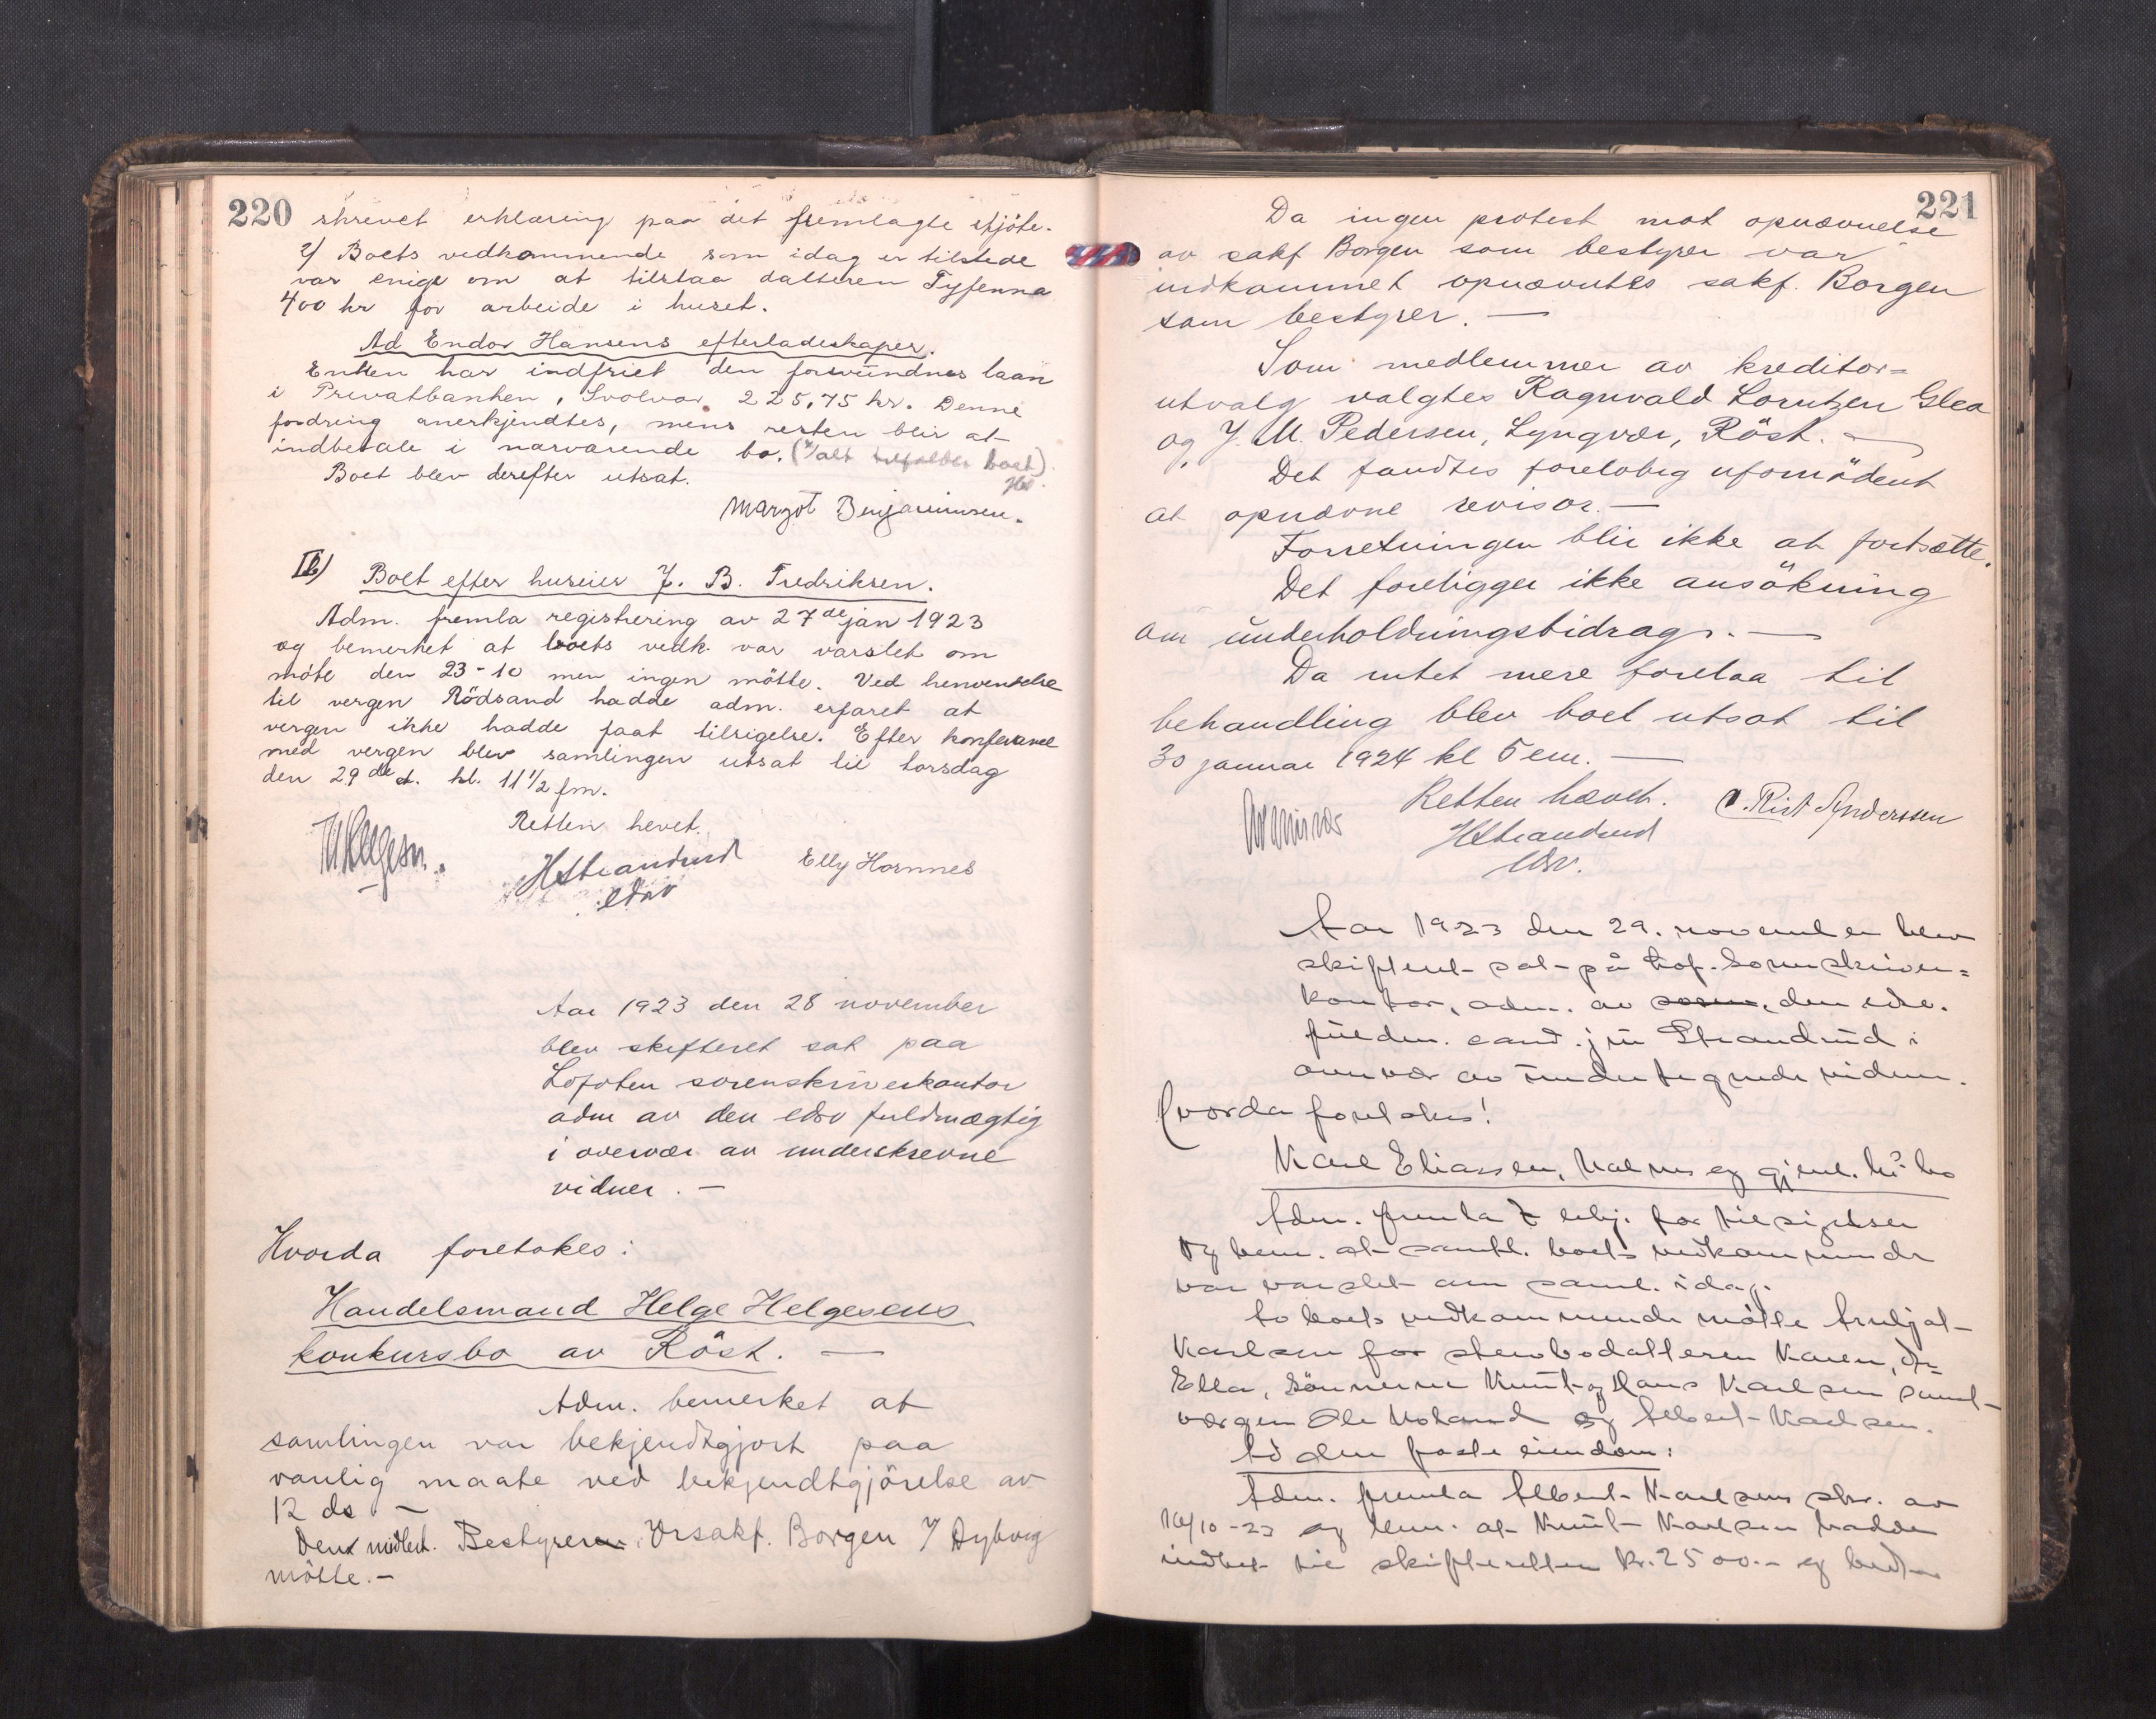 220
skrevet erklæring paa det fremlagte skjöte.
2/ Boets vedkommende som idag er tilstede
var enige om at tilstaa datteren Tyfenna
400 kr for arbeide i huset.
Ad Endor Hansens efterladeskaper.
Enken har indfriet den forsvundnes laan
i Privatbanken, Svolvær, 225,75 kr. Denne
fordring anerkjendtes, mens resten blir at
indbetale i nærværende bo. (alt tilfalder boet)
Boet blev derefter utsat.
Margot Benjaminsen.
II) Boet efter huseier J. B. Fredriksen.
Adm. fremla registrering av 27de jan 1923
og bemerket at boets vedk. var varslet om
möte den 23-10 men ingen mötte. Ved henvendelse
til vergen Rödsand hadde adm. erfaret at
vergen ikke hadde faat tilsigelse. Efter konferanse
med vergen blev samlingen utsat til torsdag
den 29de d. kl. 11 1/2 fm.
Retten hevet.
HStrandrud
edsv
Elly Hornnes
Aar 1923 den 28 november
blev skifteret sat paa
Lofoten sorenskriverkontor
adm av den edsv fuldmægtig
i overvær av underskrevne
vidner. —
Hvorda foretokes:
Handelsmand Helge Helgesens
konkursbo av Röst. —
Adm. bemerket at
samlingen var bekjendtgjort paa
vanlig maate ved bekjendtgjörelse av
12 ds —
Den midlert. Bestyrer Orsakf. Borgen J Dybwig
mötte.-
221
Da ingen protest mot opnævnelse
av sakf Borgen som bestyrer var
indkommet opnævntes sakf. Borgen
som bestyrer. —
Som medlemmer av kreditor=
utvalg valgtes Ragnvald Lorntzen Glea
og J. M. Pedersen, Lyngvær, Röst. —
Det fandtes forelobig ufornödent
at opnævne revisor. —
Forretningen blir ikke at fortsætte.
Det foreligger ikke ansökning
om underholdningsbidrag. —
Da intet mere forelaa til
behandling blev boet utsat til
30 januar 1924 kl 5 em. —
Retten hævet.
HStrandrud
edsv.
C. Rist Anderssen
Aar 1923 den 29. november blev
skifteret sat på Lof. sorenskriver=
kontor, adm. av soren, den edsv.
fuldm. cand. jur Strandrud i
overvær av undertegnede vidner.
Hvorda foretokes!
Karl Eliassen, Kalnes og gjenl. h? bo
Adm. fremla 7 erkj. for tilsigelser
og bem. at samtl. boets vedkommende
var varslet om saml. idag.
Av boets vedkommende mötte
Karlsen for stevbodatteren Karen,
Ella, sönnerne Knut og Hans Karlsen samt
vergen Ole Moland og Albert Karlsen.
Ad den faste eiendom:
Adm. fremla Albert Karlsens skr. av
16/10-23 og bem. at Knut Karlsen hadde
indbet til skifteretten kr. 2500.- og